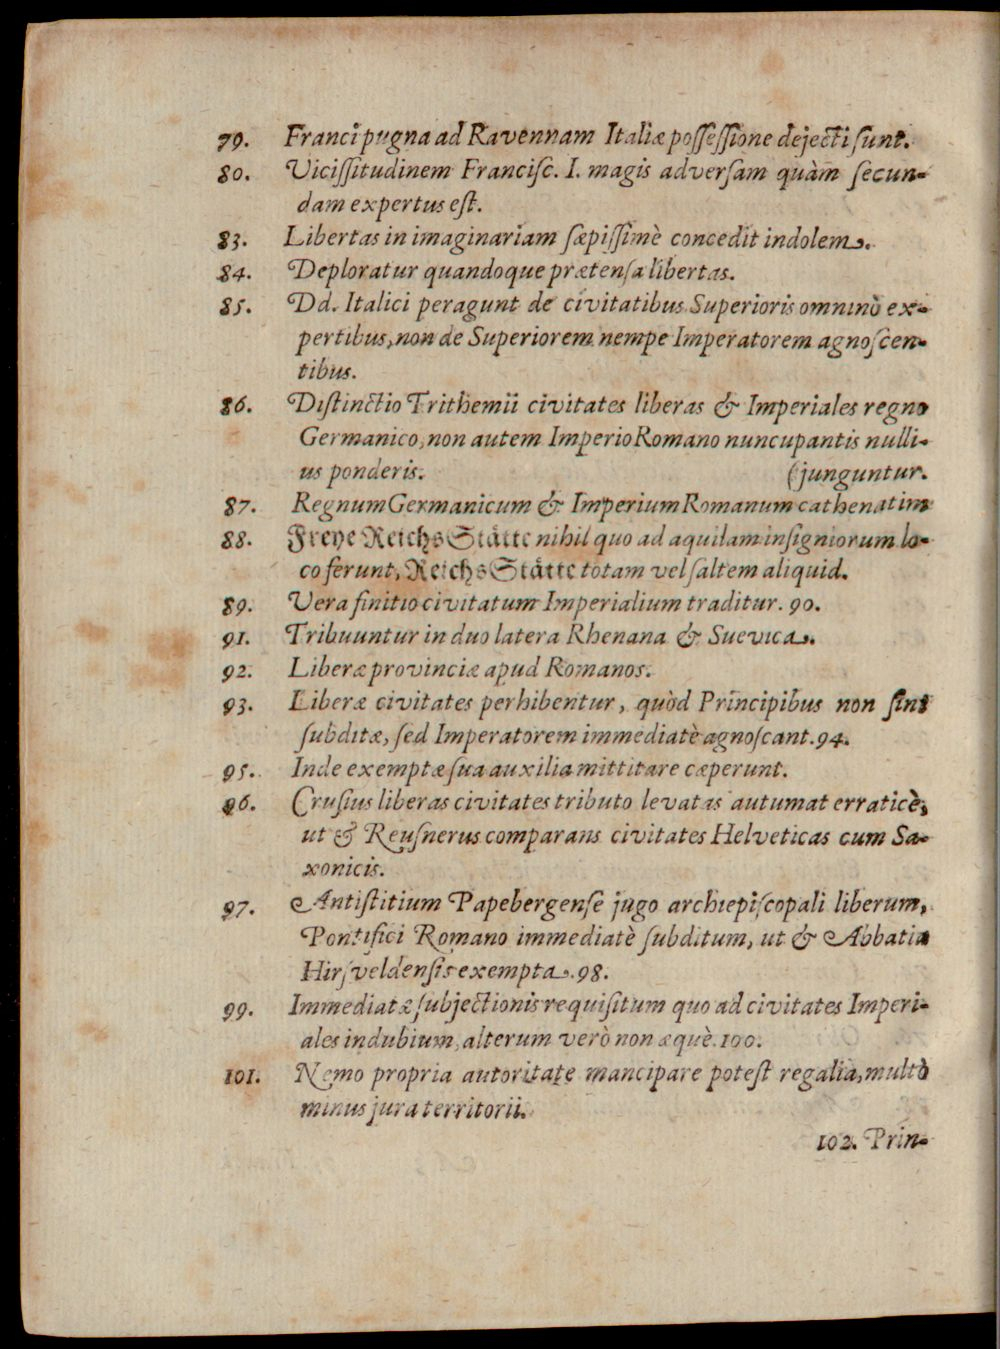 79. Franci pugna ad Ravennam Italiæ poſſeſſione dejecti ſunt.
80. Viciſſitudinem Franciſc. I. magis adverſam quàm ſecun-
dam expertus eſt.
83. Libertas in imaginariam ſæpiſſimè concedit indolem.
84. Deploratur quandoque prætenſa libertas.
85. Dd. Italici peragunt de civitatibus Superioris omninò ex-
pertibus, non de Superiorem nempe Imperatorem agnoſcen-
tibus.
86. Diſtinctio Trithemii civitates liberas & Imperiales regno
Germanico, non autem Imperio Romano nuncupantis nulli-
us ponderis. (junguntur.
87. Regnum Germanicum & Imperium Romanum cathenatim
88. Freye Reichs Stätte nihil quo ad aquilam inſigniorum lo-
co ferunt, Reichs Stätte totam vel ſaltem aliquid.
89. Vera finitio civitatum Imperialium traditur. 90.
91. Tribuuntur in duo latera Rhenana & Suevica.
92. Liberæ provinciæ apud Romanos.
93. Liberæ civitates perhibentur, quòd Principibus non ſint
ſubditæ, ſed Imperatorem immediatè agnoſcant. 94.
95. Inde exemptæ ſua auxilia mittitare cæperunt.
96. Cruſius liberas civitates tributo levatas autumat erraticè,
ut & Reuſnerus comparans civitates Helveticas cum Sa-
xonicis.
97. Antiſtitium Papebergenſe jugo archiepiſcopali liberum,
Pontifici Romano immediatè ſubditum, ut & Abbatia
Hirſveldenſis exempta. 98.
99. Immediatæ ſubjectionis requiſitum quo ad civitates Imperi-
ales indubium, alterum verò non æquè. 100.
101. Nemo propria autoritate mancipare poteſt regalia, multò
minus jura territorii.
102. Prin-